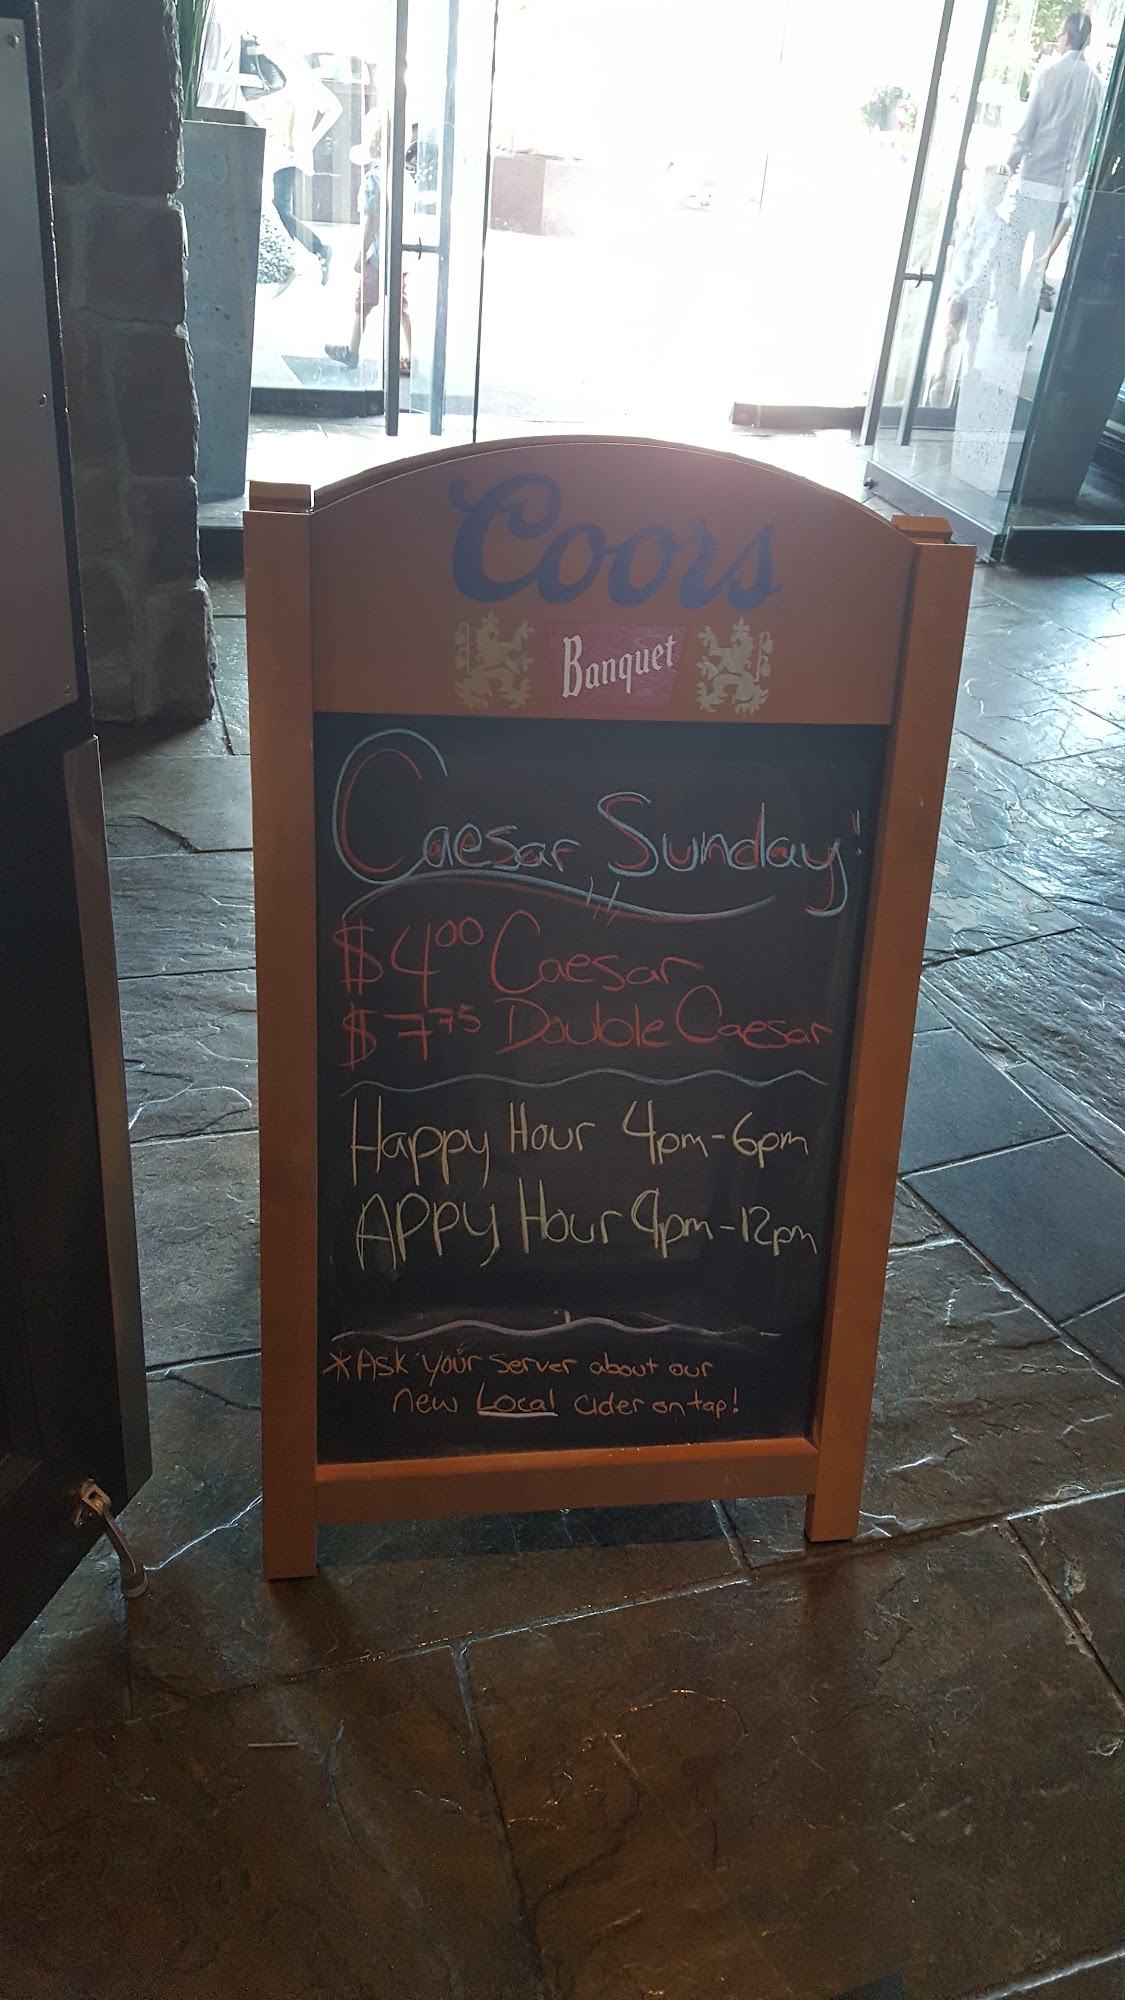 Coors
Banquet
Caesar Sunday!
$4.00 Caesar
$7.75 Double Caesar
Happy Hour 4pm-6pm
APPY Hour 9pm-12pm
*Ask your server about our
new Local cider on tap!